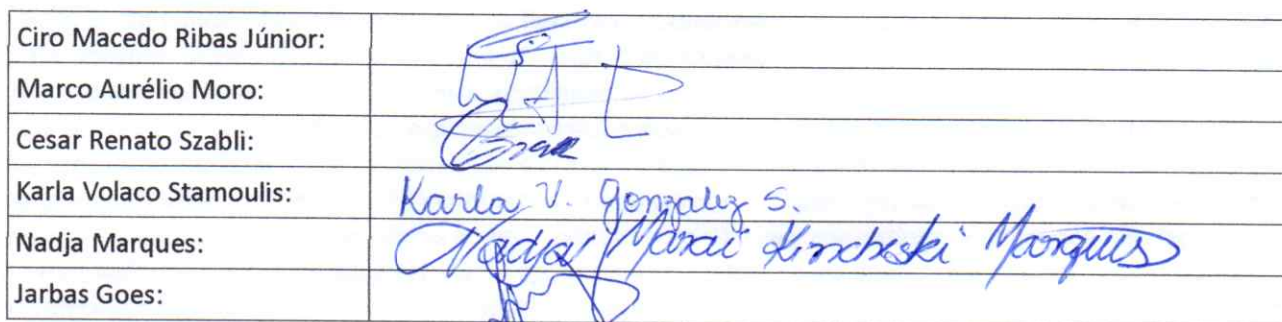 Ciro Macedo Ribas Júnior:
Marco Aurélio Moro:
Cesar Renato Szabli:
Karla Volaco Stamoulis: Karla V. Gonzalez S.
Nadja Marques: Nadja Marai Marques
Jarbas Goes: